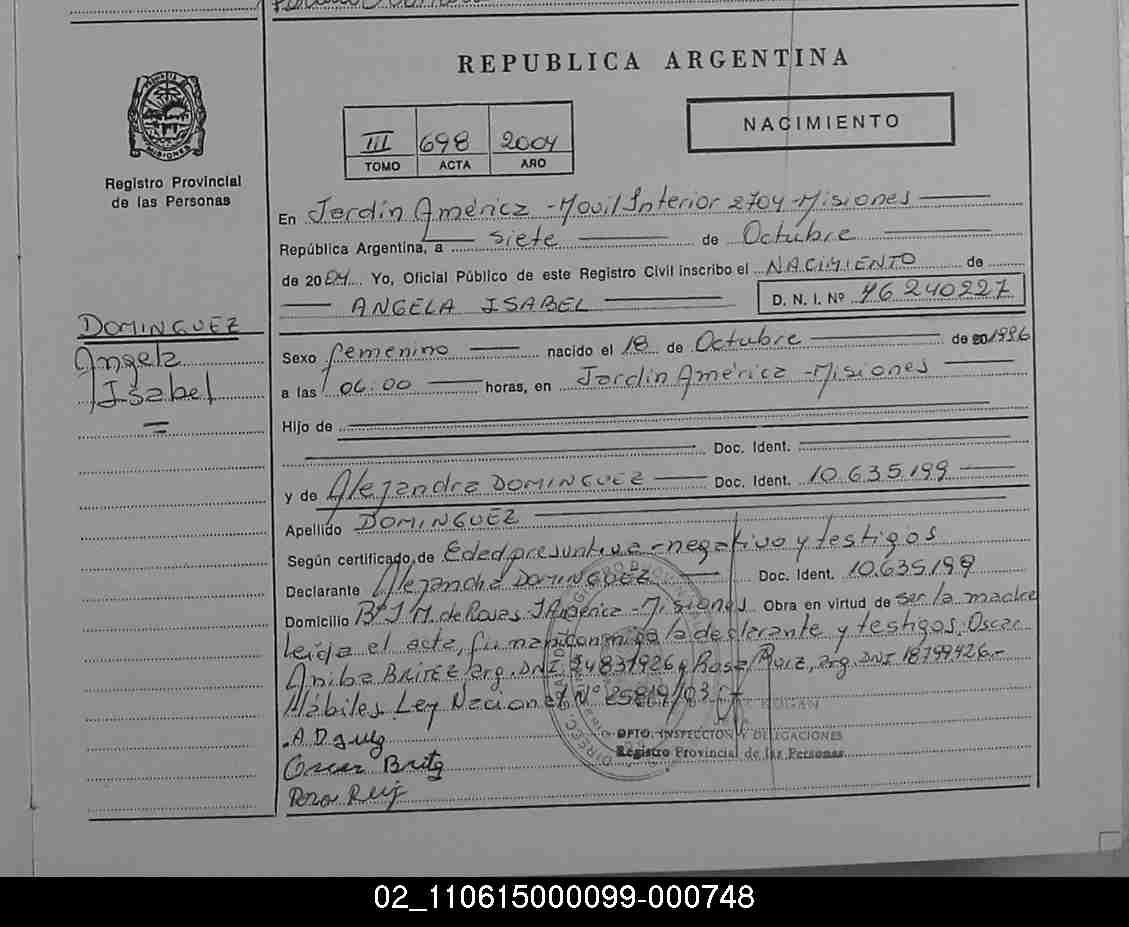 REPUBLICA ARGENTINA
MISIONES
Registro Provincial
de las Personas
III 698 2004
TOMO ACTA AÑO
NACIMIENTO
En Jardín América - Movil Interior 2704 - Misiones
República Argentina, a siete de Octubre
de 2004 Yo, Oficial Público de este Registro Civil inscribo el NACIMIENTO de
ANGELA ISABEL D. N. I. Nº 46 240227
DOMINGUEZ
Angela
Isabel
=
Sexo femenino nacido el 18 de Octubre de 20 1996
a las 06:00 horas, en Jardín América - Misiones
Hijo de
Doc. Ident.
y de Alejandra DOMINGUEZ Doc. Ident. 10.635.199
Apellido DOMINGUEZ
Según certificado de Edad presuntiva - negativo y testigos
Declarante Alejandra DOMINGUEZ Doc. Ident. 10.635.199
Domicilio Bº J M. de Rosas J América - Misiones Obra en virtud de ser la madre
Leída el acta, firman conmigo la declarante y testigos: Oscar
BRITEZ arg. DNI 24837926 y Rosa Ruiz, arg. DNI 18799426.-
Hábiles Ley Nacional Nº 25819/03
KOGAN
DPTO. INSPECCION Y DELEGACIONES
Registro Provincial de las Personas
Oscar Britez
02_110615000099-000748